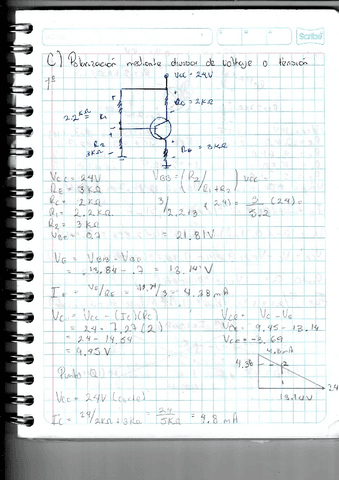 Scribe
C) Polarización mediante divisor de voltaje o tensión
Vcc = 24V
Rc = 2KΩ
2.2KΩ R1
R2
3KΩ
RE = 3KΩ
Vcc = 24V
RE = 3KΩ
Rc = 2KΩ
R1 = 2.2KΩ
R2 = 3KΩ
VBE = 0.7
VBB = (R2/R1+R2) Vcc =
3/2.2+3 (24) = 3/5.2 (24) =
= 21.81V
VE = VBB - VBE
= 13.84 - .7 = 13.14V
IE = VE/RE = /3 = 4.38mA
Vc = Vcc - (Ic)(Rc)
= 24 - 7.27(2)
= 24 - 14.54
= 9.45V
VCE = Vc - VE
VCE = 9.45 - 13.14
VCE = -3.69
Punto Q
Vcc = 24V
Ic = 24/2KΩ+3KΩ = 24/5KΩ = 4.8 mA
4.8mA
4.38
Q
24
13.14V